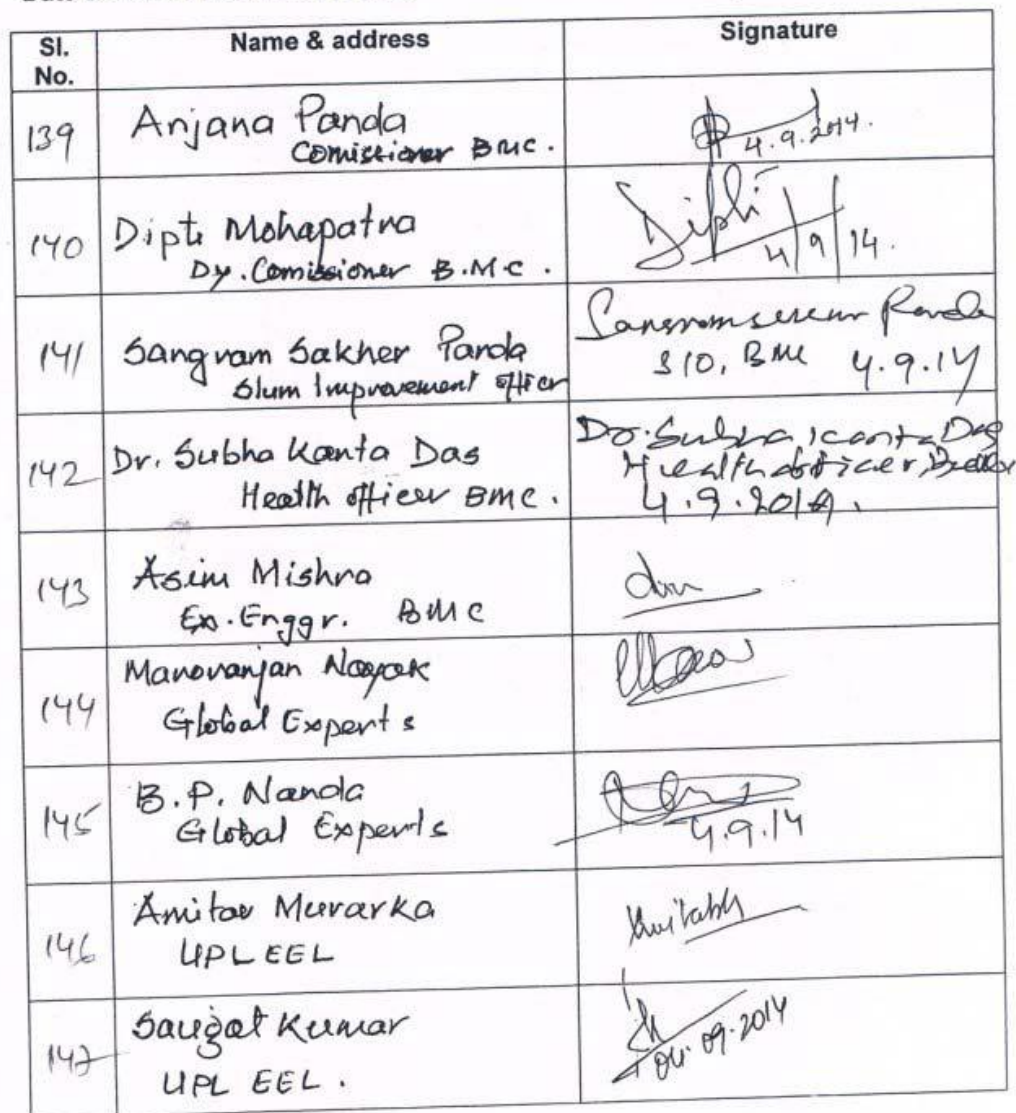 Sl. No. Name & address Signature
139 Anjana Panda
Comissioner BMC.
4.9.2014.
140 Dipti Mohapatra
Dy. Comissioner B.M.C.
Dipti
4/9/14.
141 Sangram Sakher Panda
Slum Improvement officer
Panda
SIO, BMC 4.9.14
142 Dr. Subha Kanta Das
Health officer BMC.
Dr. Subha Kanta Das
Health officer,
4.9.2014.
143 Asim Mishra
Ex. Enggr. BMC
144 Manoranjan Nayak
Global Experts
145 B.P. Nanda
Global Experts
4.9.14
146 Amitav Murarka
UPL EEL
Amitabh
147 Saugat Kumar
UPL EEL.
04.09.2014